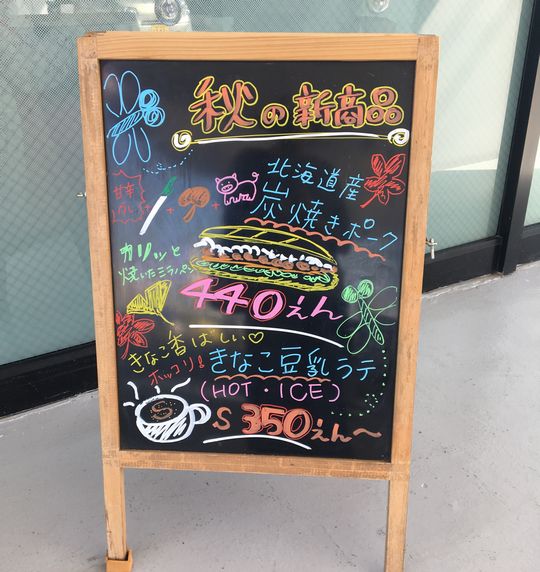 秋の新商品
北海道産
炭焼きポーク
甘辛
カリッと
焼いたミラノパン
440えん
きなこ香ばしい♡
ホッコリ!
きなこ豆乳ラテ
(HOT・ICE)
S 350えん〜